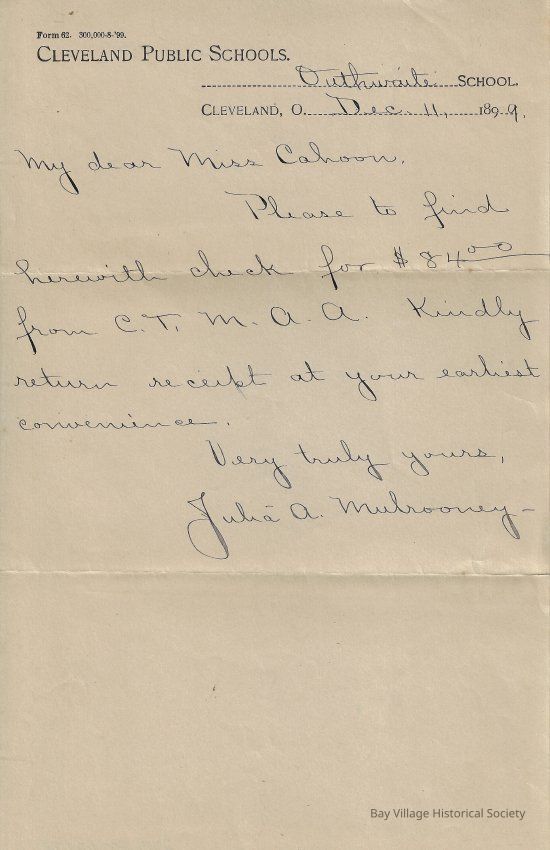 Form 62. 300,000-8-'99.
CLEVELAND PUBLIC SCHOOLS.
Outhwaite SCHOOL.
CLEVELAND, O. Dec. 11, 1899.
My dear Miss Cahoon,
Please to find
herewith check for $84.00
from C.T. M. A. A. Kindly
return receipt at your earliest
convenience.
Very truly yours,
Julia A. Mulrooney-
Bay Village Historical Society